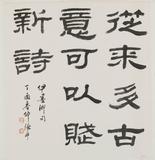 從來多古
意可以賦
新詩
伊墨卿句
丁酉春仲